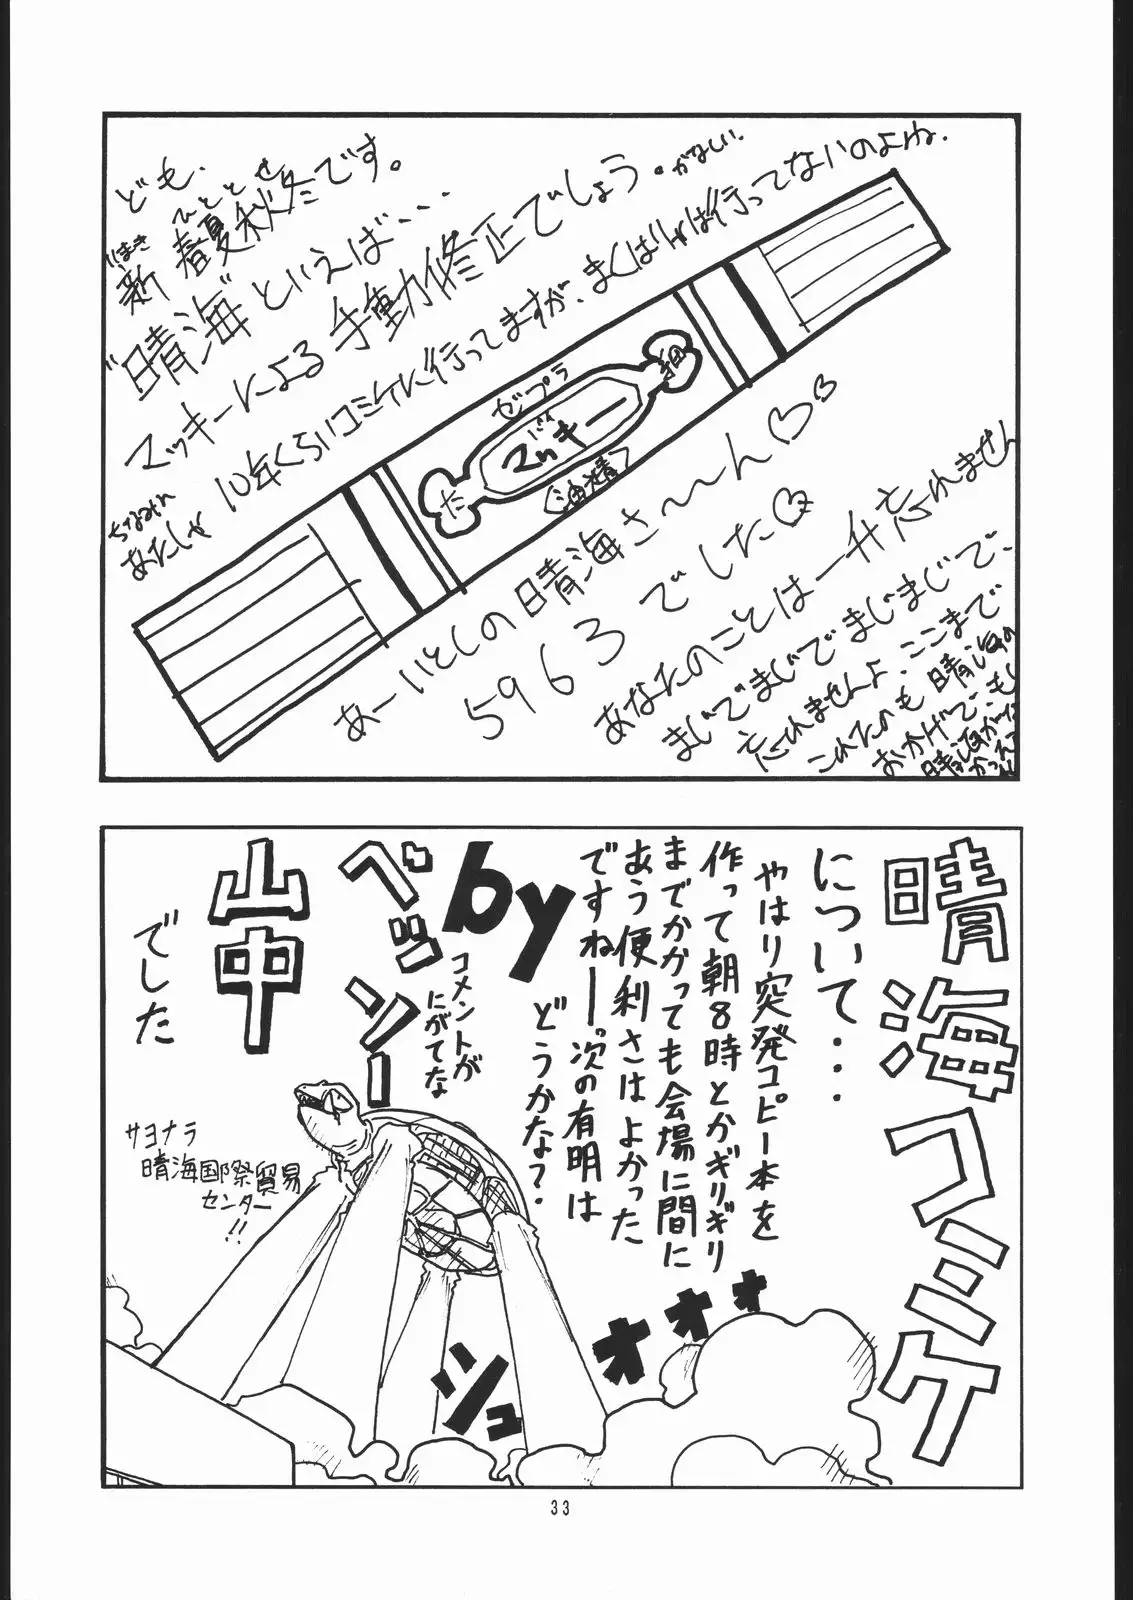 ども。
ひととせ
新 春夏秋冬です。
"晴海"といえば、、、、
マッキーによる手動修正でしょう。
ちなみに
あたしゃ
10年くらいコミケに行ってますが、まくはりゃは行ってないのよね。
ゼブラ
マッキー
た
細
あーいとしの晴海さ〜〜ん♡♡
5963でした♡
あなたのことは一升忘れません
まじでまじでまじまじで、
忘れませんよ。ここまで
これたのも晴海の
おかげで
晴海コミケ
について・・・
やはり突発コピー本を
作って朝8時とかギリギリ
までかかっても会場に間に
あう便利さはよかった
ですねーっ次の有明は
どうかな?
by
コメントが
にがてな
ペッソー
山中
でした
サヨナラ
晴海国際貿易
センター
!!
オオオォ
シュ
33